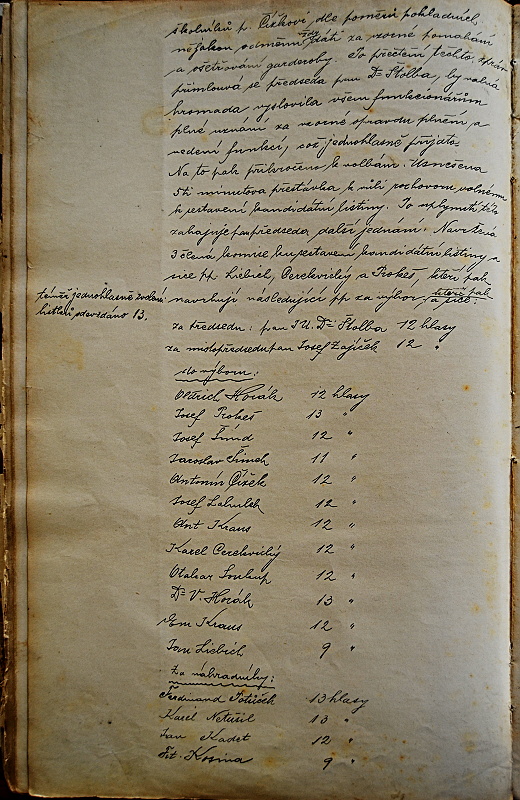 školníků p. Čížkovi dle poměru pokladních
nějakou odměnu vždy dáti za vzorné pomáhání
a ošetřování garderoby. Po přečtení těchto zpráv
přimlouvá se předseda pan Dr Štolba, by valná
hromada vyslovila všem funkcionářům
plné uznání za vzorné opravdu plnění a
vedení funkcí, což jednohlasně přijato.
Na to pak přikročeno k volbám. Usnešena
5ti minutova přestávka k vůli pochovom volnému
k sestavení kandidátní listiny. Po uplynutí této
zahajuje pan předseda další jednání. Navržená
3 člená komise ku sestavení kandidátní listiny a
sice pp. Liebich, Cerekvický a Prokeš, kteří pak
navrhují následující pp za výbor, kteří pak a sice:
téměř jednohlasně zvoleni
lístků odevzdáno 13.
za předsedu: pan JU. Dr Štolba 12 hlasy
za místopředsedu pan Josef Zajíček 12 "
do výboru:
Oldřich Horák 12 hlasy
Josef Prokeš 13 "
Josef Šmíd 12 "
Jaroslav Šimek 11 "
Antonín Čížek 12 "
Josef 12 "
Ant Kraus 12 "
Karel Cerekvický 12 "
Otakar Soukup 12 "
Dr V. Horák 13 "
Em Kraus 12 "
Jan Liebich 9 "
Za náhradníky:
Ferdinand 13 hlasy
Karel Netušil 13 "
Jan Kadet 12 "
Fr. Kosina 9 "